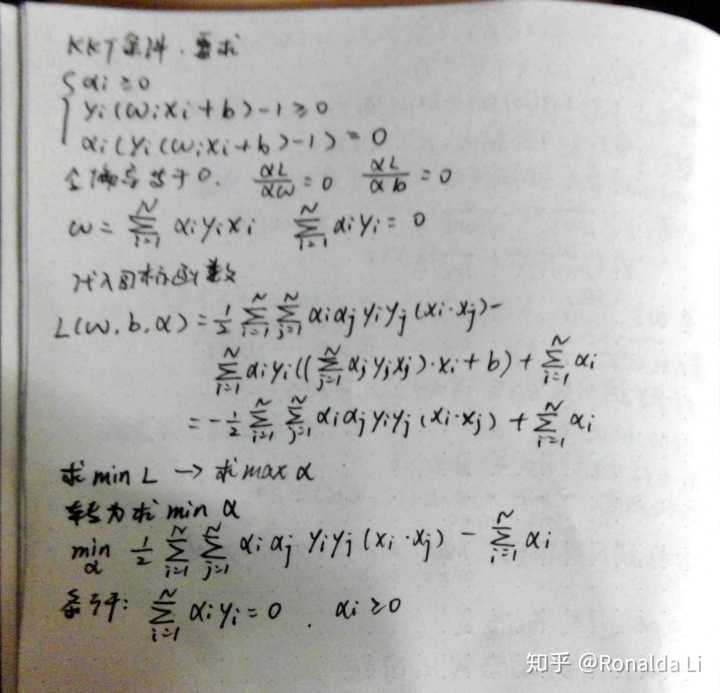 KKT条件.要求
{ αi ≥ 0
yi(ωixi+b)-1 ≥ 0
αi(yi(ωixi+b)-1) = 0
令偏导等于0. αL/αω = 0 αL/αb = 0
ω = ∑_{i=1}^{N} αiyixi ∑_{i=1}^{N} αiyi = 0
代入目标函数
L(ω,b,α) = 1/2 ∑_{i=1}^{N} ∑_{j=1}^{N} αiαjyiyj(xi·xj) -
∑_{i=1}^{N} αiyi((∑_{j=1}^{N} αjyjxj)·xi+b) + ∑_{i=1}^{N} αi
= -1/2 ∑_{i=1}^{N} ∑_{j=1}^{N} αiαjyiyj(xi·xj) + ∑_{i=1}^{N} αi
求 min L → 求 max α
转为求 min α
min_α 1/2 ∑_{i=1}^{N} ∑_{j=1}^{N} αiαjyiyj(xi·xj) - ∑_{i=1}^{N} αi
条件: ∑_{i=1}^{N} αiyi = 0 . αi ≥ 0
知乎 @Ronalda Li